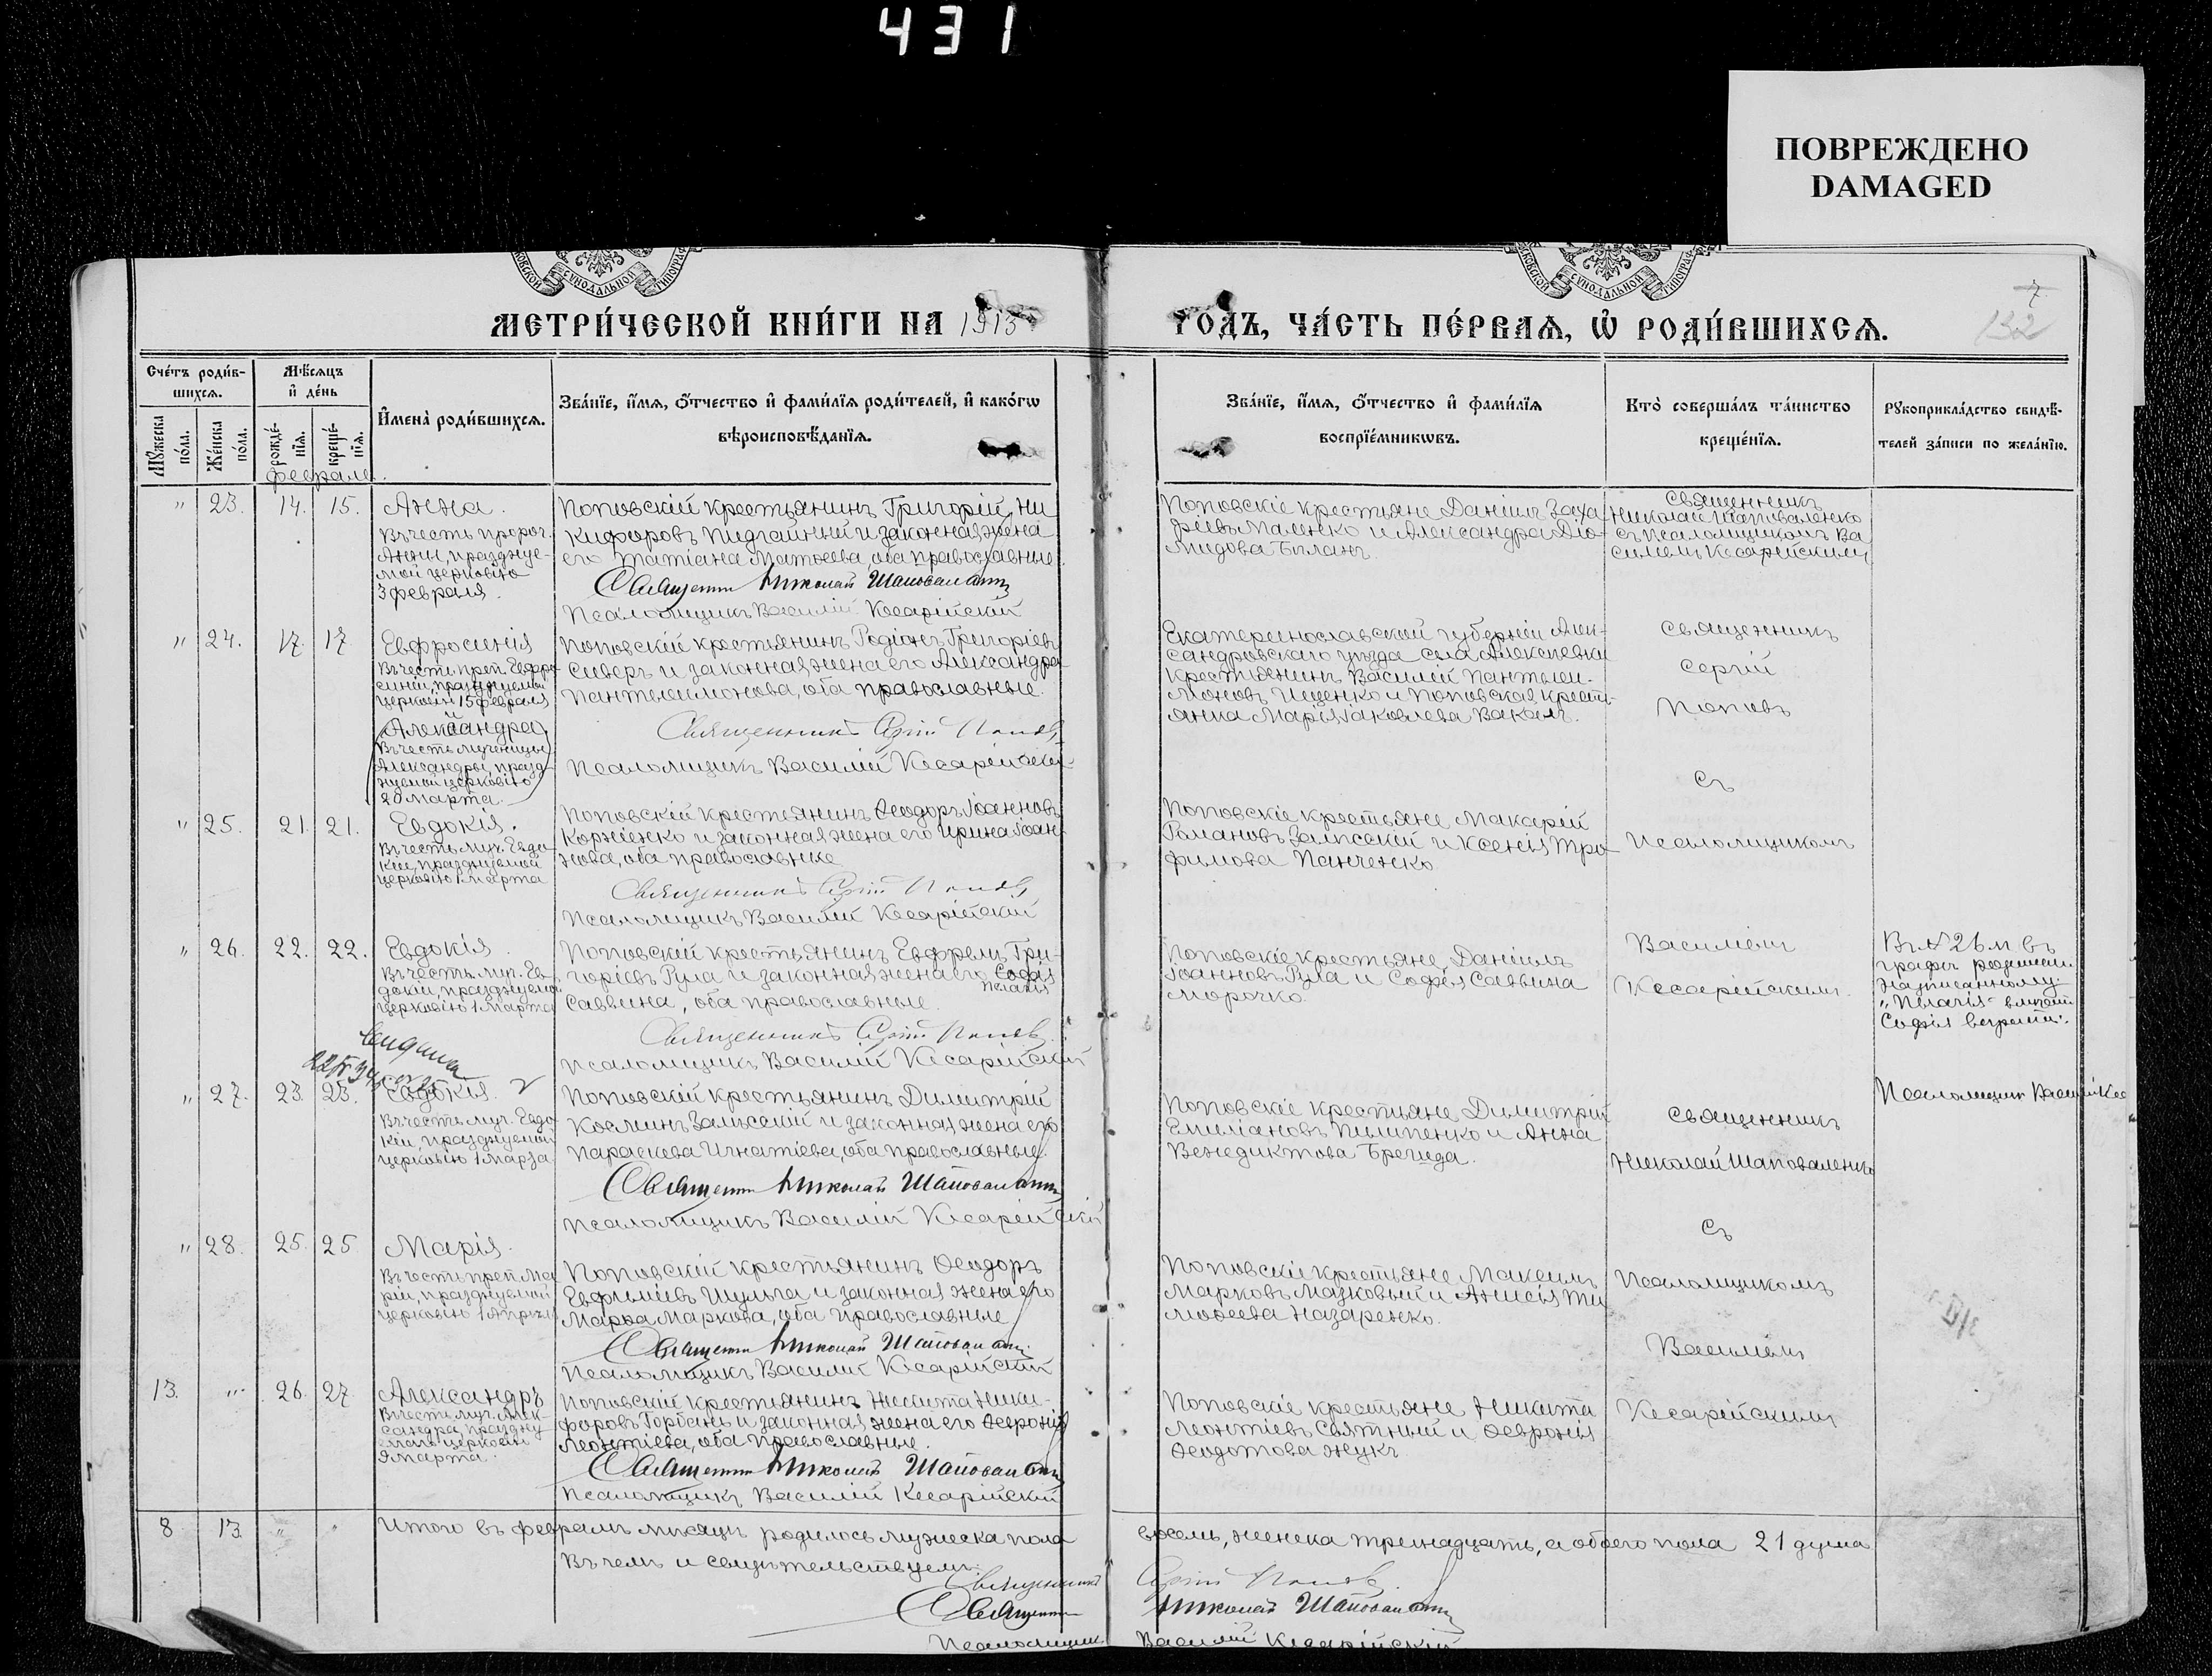 431
ПОВРЕЖДЕНО
DAMAGED
СѴНОДАЛЬНОЙ
СѴНОДАЛЬНОЙ
МЕТРИ́ЧЕСКОЙ КНИ́ГИ НА 1913
ГОДЪ, ЧА́СТЬ ПЕ́РВАѦ, Ѡ҆ РОДИ́ВШИХСѦ.
7
132
Сче́тъ роди́в-
шихсѧ.
Мѣ́сѧцъ
и҆ де́нь
Мꙋ́жеска
по́ла.
Же́нска
по́ла.
рожде́-
нїѧ.
креще́-
нїѧ.
И҆мена̀ роди́вшихсѧ.
Зва́нїе, и҆́мѧ, о҆́тчество и҆ фами́лїѧ роди́телей, и҆ како́гѡ
вѣроисповѣ́данїѧ.
Зва́нїе, и҆́мѧ, о҆́тчество и҆ фами́лїѧ
воспрїе́мникѡвъ.
Кто̀ соверша́лъ та́инство
креще́нїѧ.
Рꙋкоприкла́дство свидѣ́-
телей за́писи по жела́нїю.
февраль.
" 23. 14. 15. Анна.
Въ честь пророч.
Анны, праздуе-
мой церковію
3 февраля.
Поповскій крестьянинъ Григорій Ни
кифоровъ Пидгайный и законная жена
его Татіана Матѳеева, оба православные.
Священникъ Николай Шаповаленко
Псаломщикъ Василій Кесарійскій
Поповскіе крестьяне Даніилъ Заха
ріевъ Маленко и Александра Діо-
мидова Быланъ
Священникъ
Николай Шаповаленко
съ псаломщикомъ Ва
силіемъ Кесарійскимъ
" 24. 17. 17. Евфросинія
Въ честь преп. Евфро
синіи, празднуемой
церковію 15 февраля
Александра,
Въ честь мученицы
Александры, празд-
нуемой церковію
20 марта.
Поповскій крестьянинъ Родіонъ Григоріевъ
Сиверъ и законная жена его Александра
Пантелеимонова, оба православные.
Священникъ Сергій Поповъ
Псаломщикъ Василій Кесарійскій
Екатеринославской губерніи Алек-
сандровскаго уѣзда села Алексѣевки
крестьянинъ Василій Пантелеи-
моновъ Ищенко и Поповская кресть-
янка Марія Іаковлева Вакалъ.
Священникъ
Сергій
Поповъ
съ
" 25. 21. 21. Евдокія.
Въ честь муч. Евдо
кіи, празднуемой
церковію 1 марта
Поповскій крестьянинъ Ѳеодоръ Іоанновъ
Корніенко и законная жена его Ирина Іоан-
нова, оба православные
Священникъ Сергій Поповъ
Псаломщикъ Василій Кесарійскій
Поповскіе крестьяне Макарій
Романовъ Залѣсскій и Ксенія Тро
фимова Панченко
Псаломщикомъ
" 26. 22. 22. Евдокія.
Въ честь муч. Ев-
докіи, празднуемой
церковію 1 марта
Поповскій крестьянинъ Евфремъ Гри-
горіевъ Гула и законная жена его Софія
Пелагія
Саввина, оба православные.
Священникъ Сергій Поповъ
Псаломщикъ Василій Кесарійскій
Поповскіе крестьяне Даніилъ
Іоанновъ Гула и Софія Саввина
Морочко.
Василіемъ
Кесарійскимъ.
Въ № 26 м въ
графѣ родители
написанному
"Пелагія" вмѣсто
Софія вѣрить.
Псаломщикъ Василій Кес
" 27. 23. 23. Евдокія.
Въ честь муч. Евдо
кіи, празднуемой
церковію 1 марта
Поповскій крестьянинъ Димитрій
Косминъ Залѣсскій и законная жена его
Параскева Игнатіева, оба православные.
Священникъ Николай Шаповаленко
Псаломщикъ Василій Кесарійскій
Поповскіе крестьяне Димитрій
Емиліановъ Пилипенко и Анна
Венедиктова Брегида.
Священникъ
Николай Шаповаленко
съ
" 28. 25. 25 Марія.
Въ честь преп. Ма
ріи, празднуемой
церковію 1 Апрѣля
Поповскій крестьянинъ Ѳеодоръ
Евфиміевъ Шульга и законная жена его
Марѳа Маркова, оба православные
Священникъ Николай Шаповаленко
Псаломщикъ Василій Кесарійскій
Поповскіе крестьяне Максимъ
Марковъ Мазковый и Анисія Ти
моѳеева Назаренко.
Псаломщикомъ
Василіемъ
13. " 26. 27 Александръ
Въ честь муч. Алек-
сандра, праздну
емаго церковію
9 марта.
Поповскій крестьянинъ Никита Ники-
форовъ Горбань и законная жена его Ѳевронія
Леонтіева, оба православные.
Священникъ Николай Шаповаленко
Псаломщикъ Василій Кесарійскій
Поповскіе крестьяне Никита
Леонтіевъ Святный и Ѳевронія
Ѳеодотова Жукъ.
Кесарійскимъ
8 13 " " Итого въ февралѣ мѣсяцѣ родилось мужеска пола восемь, женска тринадцать, а обоего пола 21 душа
Въ чемъ и свидѣтельствуемъ:
Священникъ Сергій Поповъ
Священникъ Николай Шаповаленко
Псаломщикъ Василій Кесарійскій